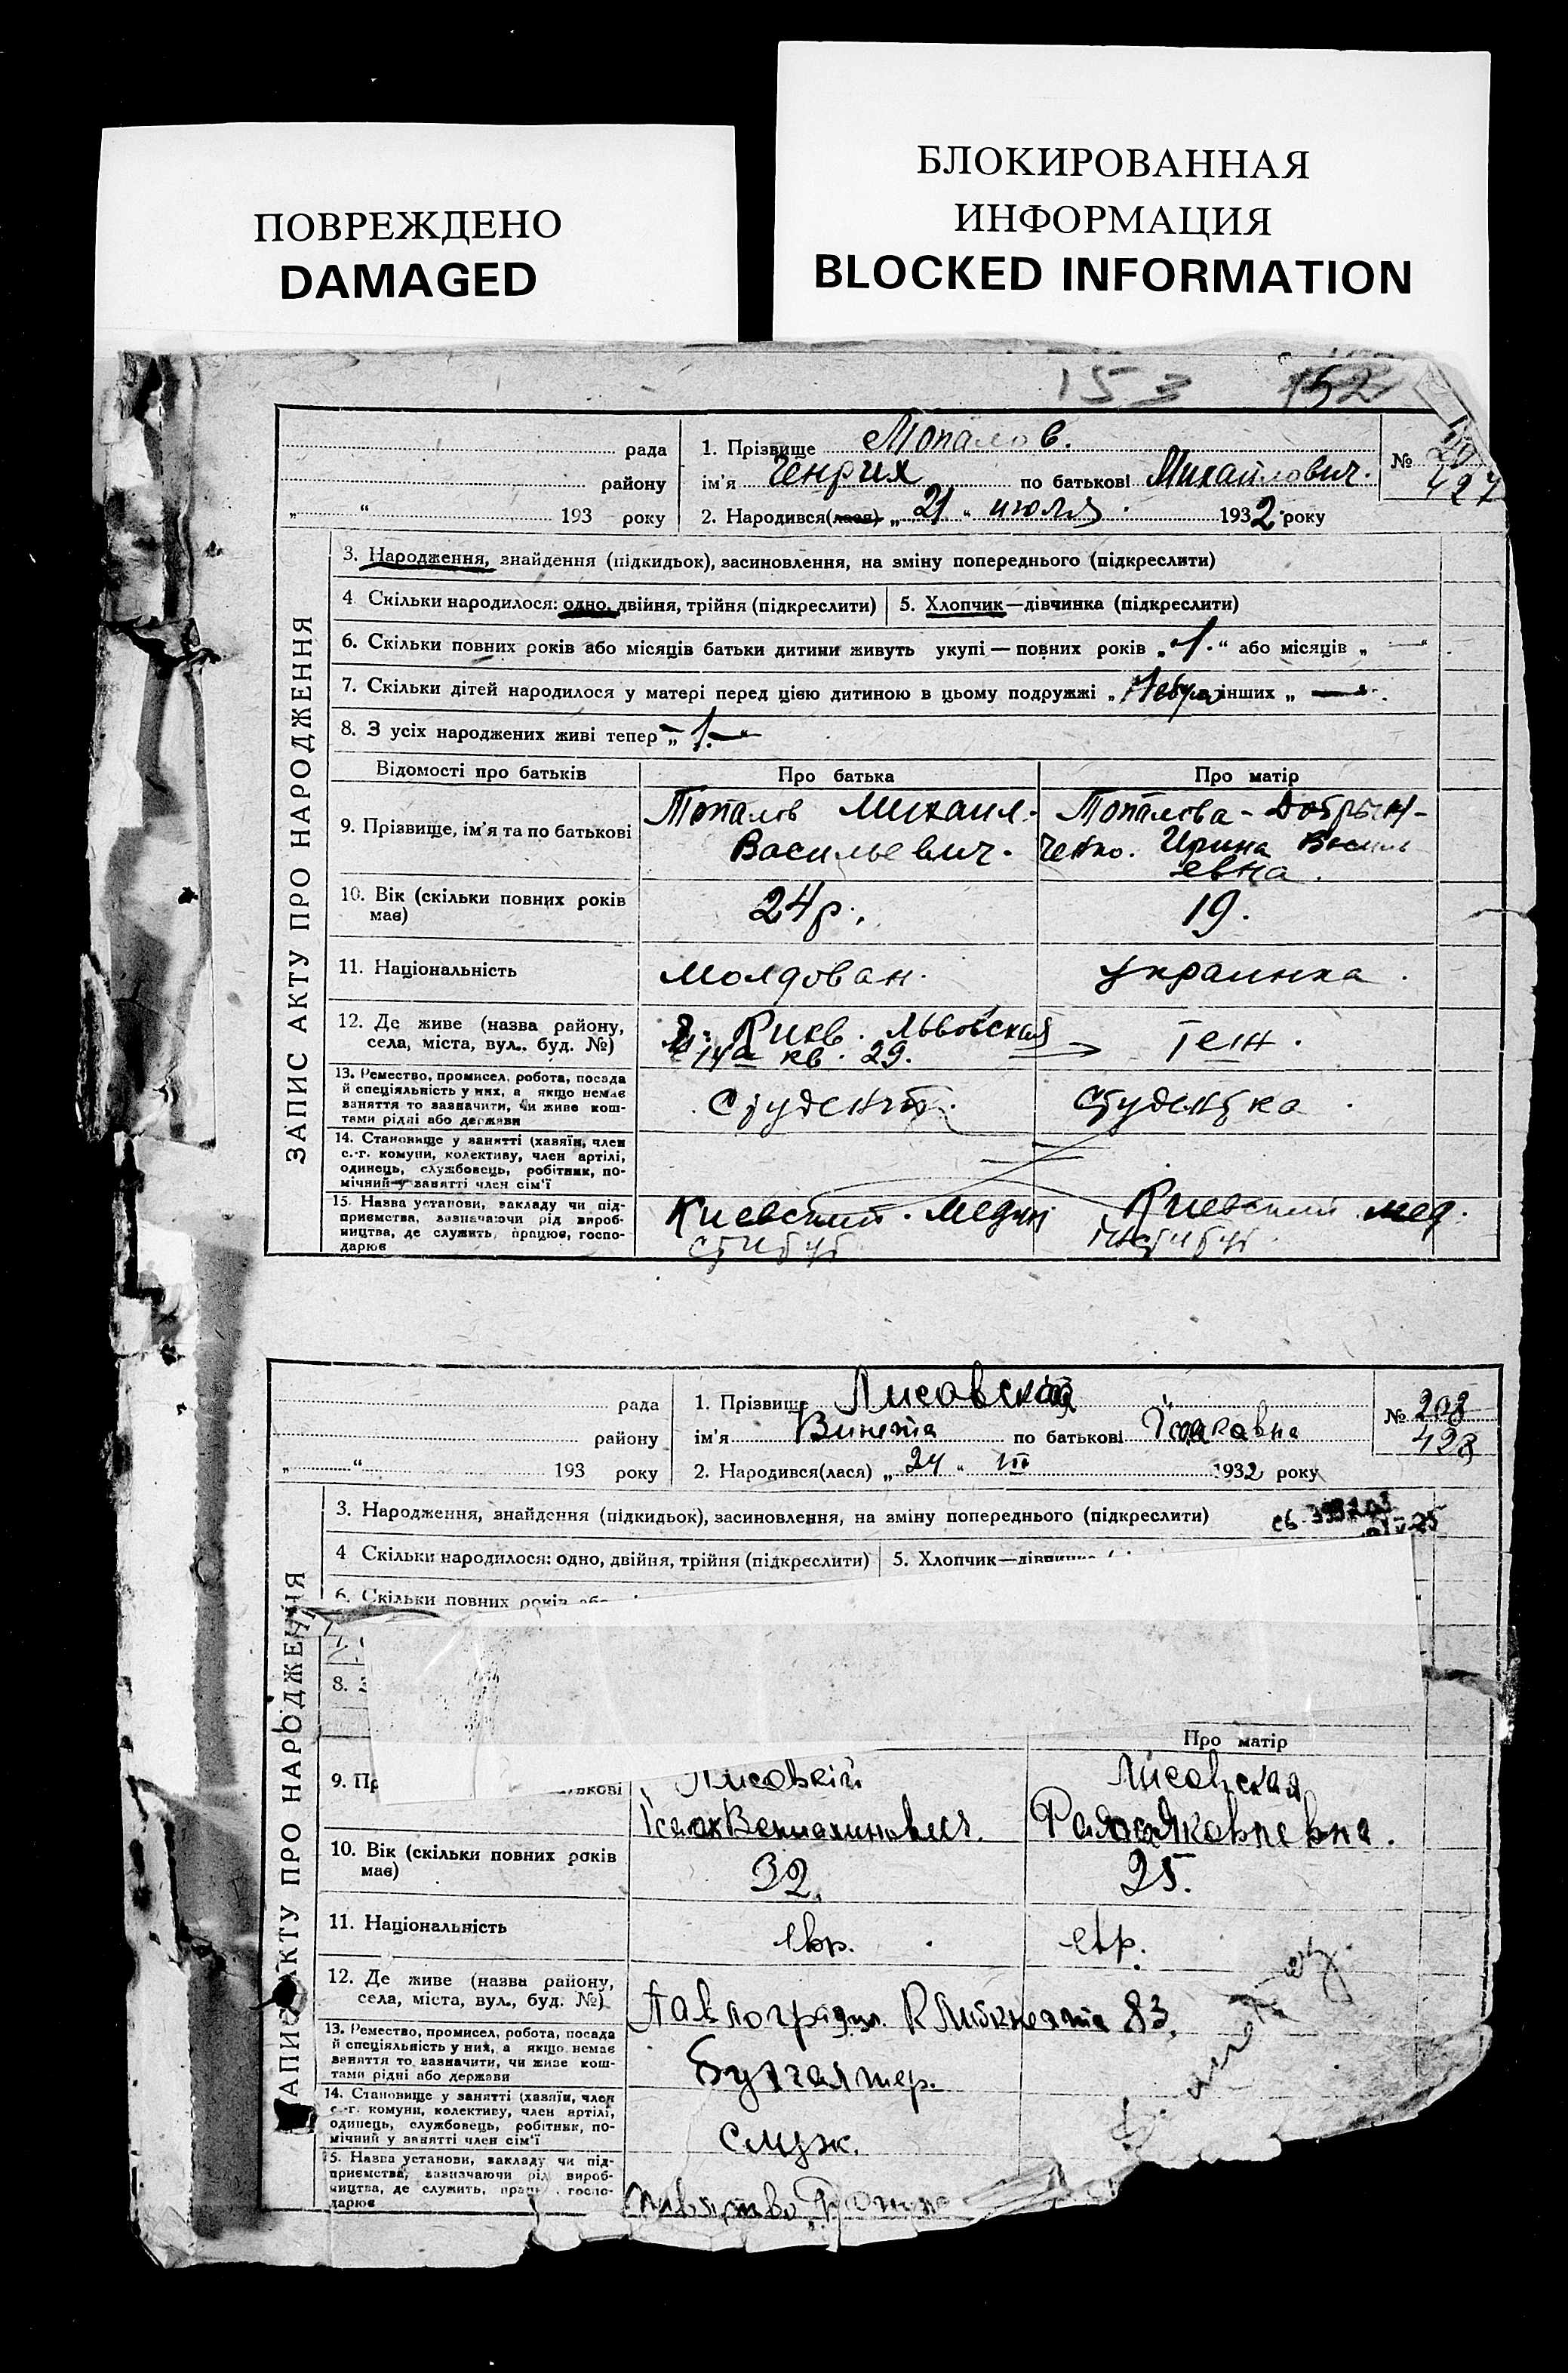 ПОВРЕЖДЕНО
DAMAGED
БЛОКИРОВАННАЯ
ИНФОРМАЦИЯ
BLOCKED INFORMATION
153 152
рада
району
„ “ 193 року
1. Прізвище Топалов.
ім'я Генрих по батькові Михайлович.
2. Народився(лася) „ 21 “ июля 1932 року
№
427
ЗАПИС АКТУ ПРО НАРОДЖЕННЯ
3. Народження, знайдення (підкидьок), засиновлення, на зміну попереднього (підкреслити)
4 Скільки народилося: одно, двійня, трійня (підкреслити) 5. Хлопчик—дівчинка (підкреслити)
6. Скільки повних років або місяців батьки дитини живуть укупі — повних років „ 1. “ або місяців „ — “
7. Скільки дітей народилося у матері перед цією дитиною в цьому подружжі „ інших „ —
8. З усіх народжених живі тепер „ 1. “
Відомості про батьків Про батька Про матір
9. Прізвище, ім'я та по батькові
Топалов Михаил
Васильевич.
Топалова - Добрын-
ченко. Ирина Василь
евна.
10. Вік (скільки повних років має) 24 р. 19.
11. Національність молдован. украинка.
12. Де живе (назва району, села, міста, вул., буд. №)
Киев. Львовская
14а кв. 29.
теж.
13. Ремество, промисел, робота, посада
й спеціяльність у них, а якщо немає
заняття то зазначити, чи живе кош-
тами рідні або держави
студент. студентка.
14. Становище у занятті (хазяїн, член
с.-г. комуни, колективу, член артілі,
одинець, службовець, робітник, по-
мічний у занятті член сім'ї
15. Назва установи, закладу чи під-
приємства, зазначаючи рід вироб-
ництва, де служить, працює, госпо-
дарює
Киевский. медин
ститут
Киевский мед.
институт.
рада
району
„ “ 193 року
1. Прізвище Лисовская
ім'я Винета по батькові Ісааковна
2. Народився(лася) „ 24 “ III 1932 року
№ 208
428
ЗАПИС АКТУ ПРО НАРОДЖЕННЯ
3. Народження, знайдення (підкидьок), засиновлення, на зміну попереднього (підкреслити)
4 Скільки народилося: одно, двійня, трійня (підкреслити) 5. Хлопчик—дівчинка
6. Скільки повних років
8.
Про матір
9.
Лисовскій
Ісаак
Лисовская
10. Вік (скільки повних років має) 32. 25.
11. Національність евр. евр.
12. Де живе (назва району, села, міста, вул., буд. №)
Павлоград К Лібкнехта 83.
13. Ремество, промисел, робота, посада
й спеціяльність у них, а якщо немає
заняття то зазначити, чи живе кош-
тами рідні або держави
Бухгалтер.
14. Становище у занятті (хазяїн, член
с.-г. комуни, колективу, член артілі,
одинець, службовець, робітник, по-
мічний у занятті член сім'ї
Служ.
15. Назва установи, закладу чи під-
приємства, зазначаючи рід вироб-
ництва, де служить, госпо-
дарює